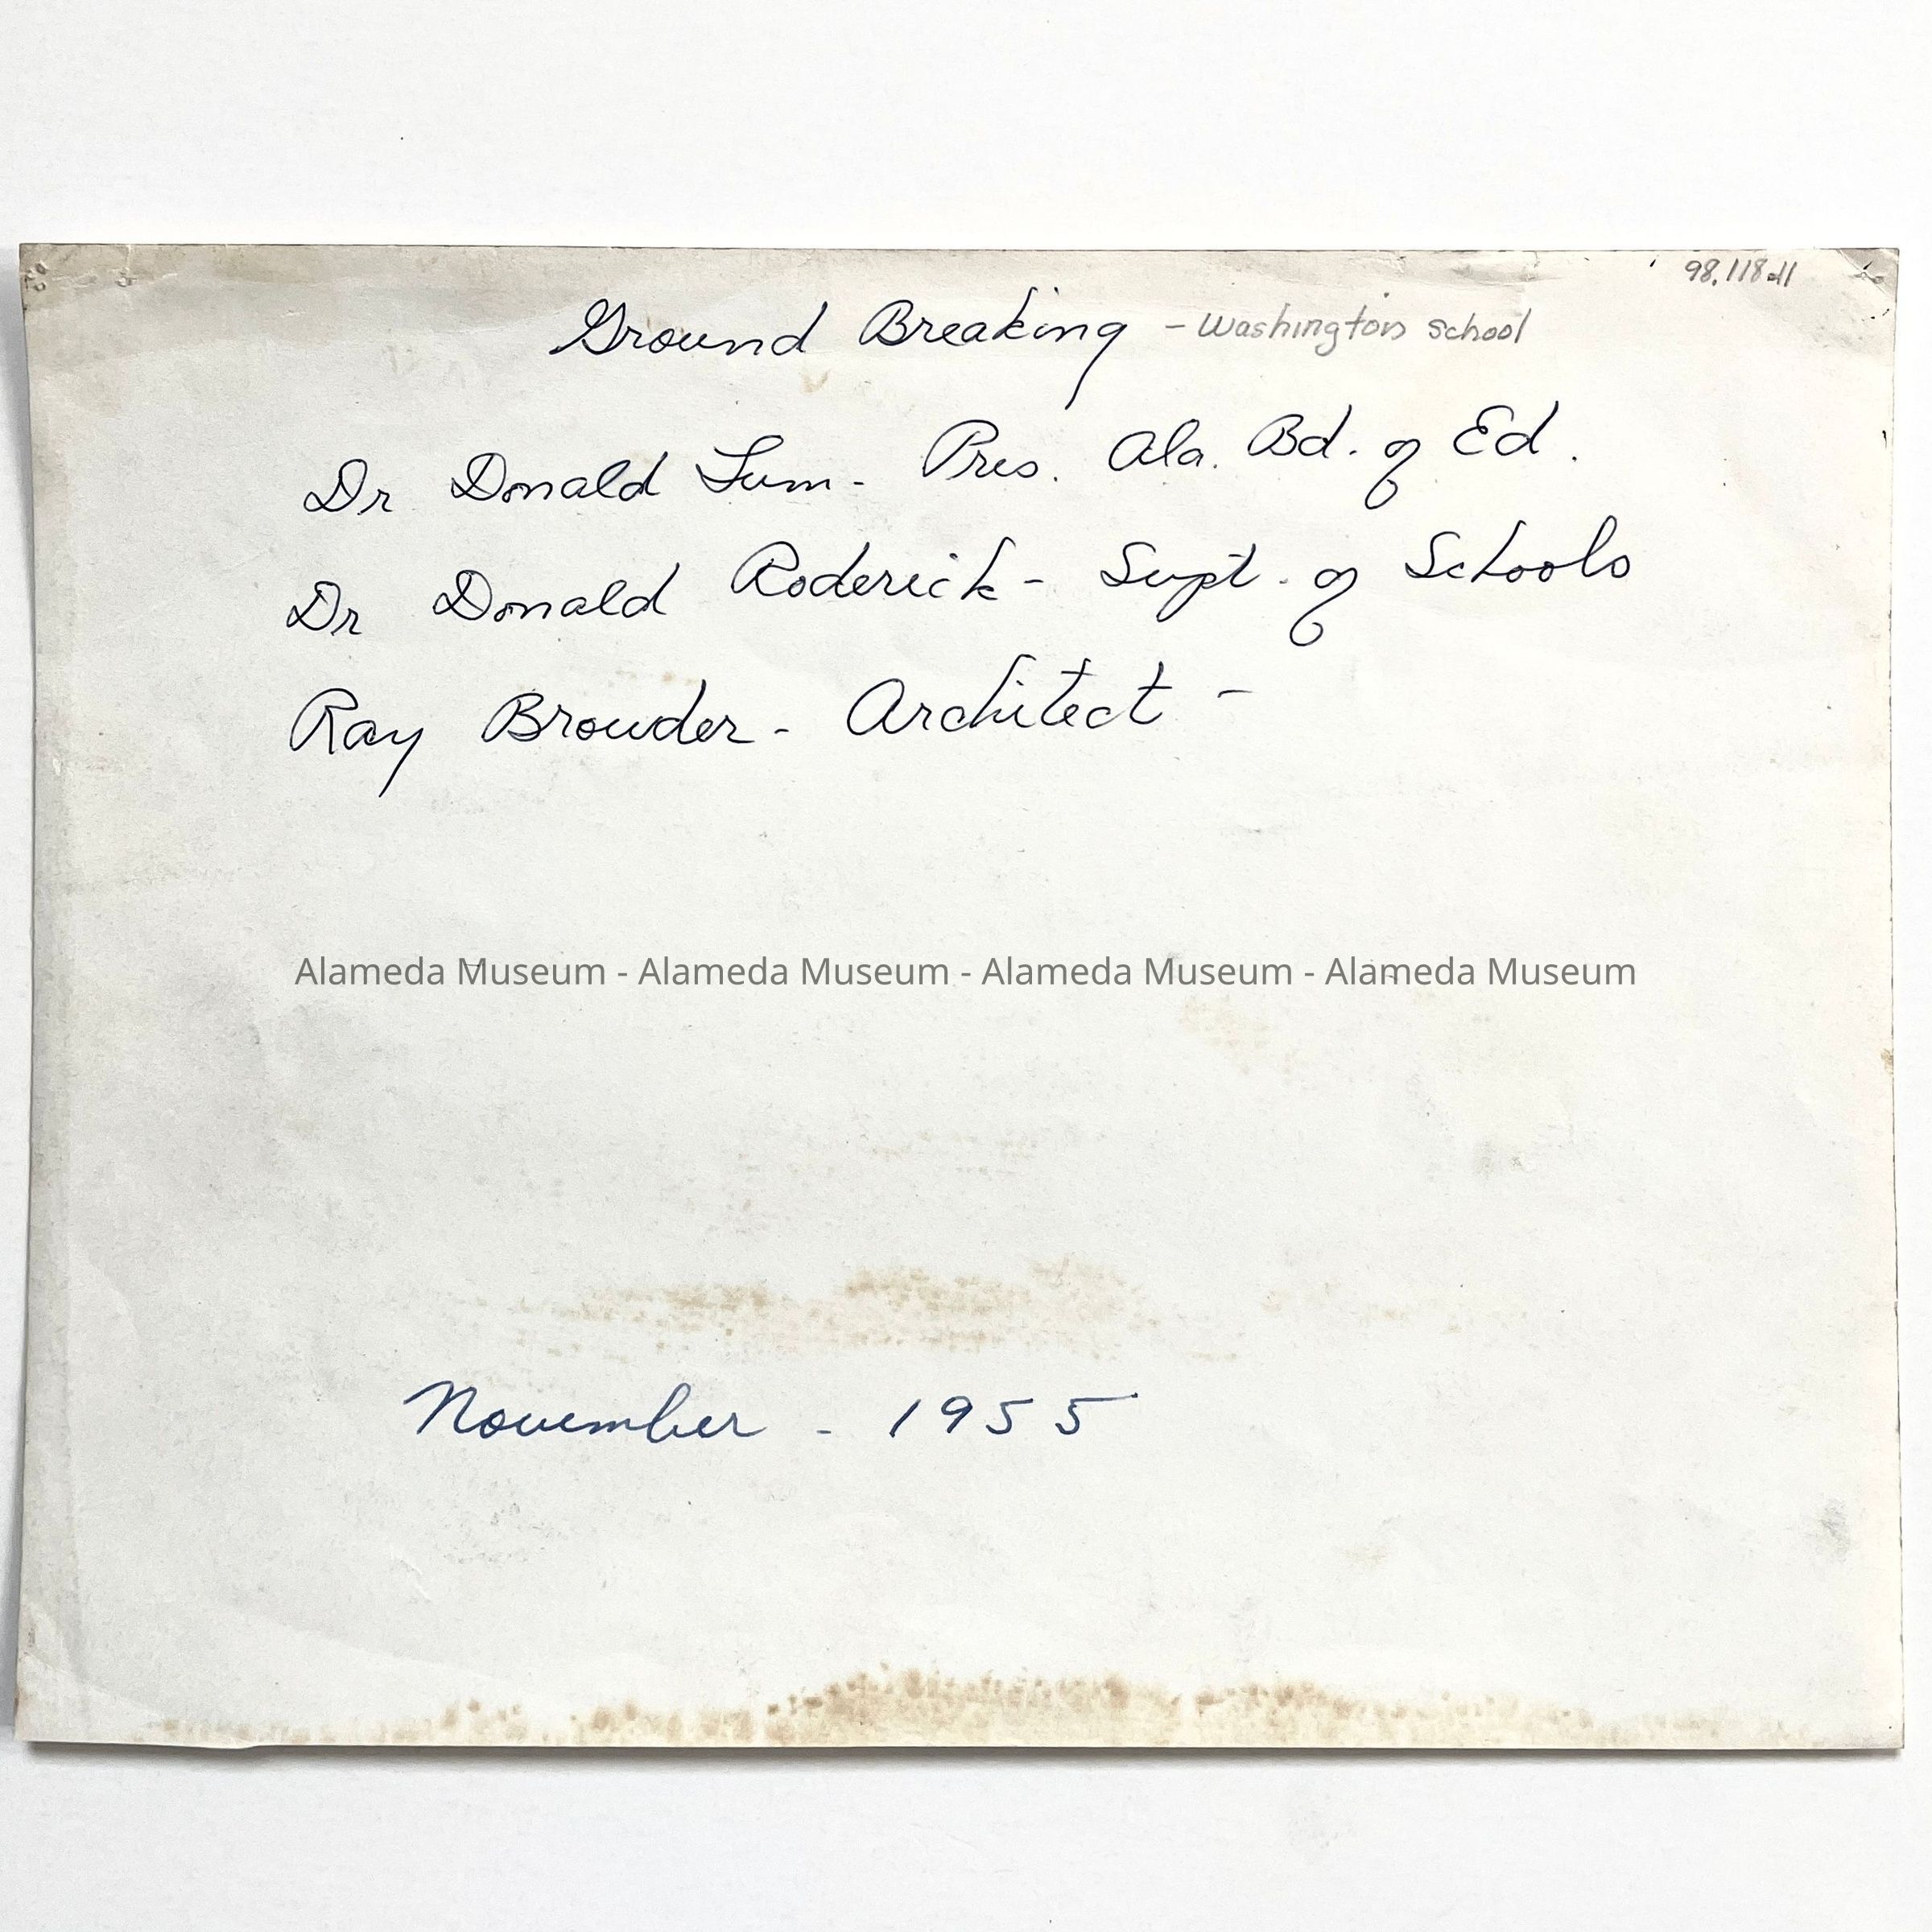 98.118.11
Ground Breaking - Washington School
Dr Donald Lum - Pres. Ala. Bd. of Ed.
Dr Donald Roderick - Supt. of Schools
Ray Browder - Architect -
Alameda Museum - Alameda Museum - Alameda Museum - Alameda Museum
November - 1955